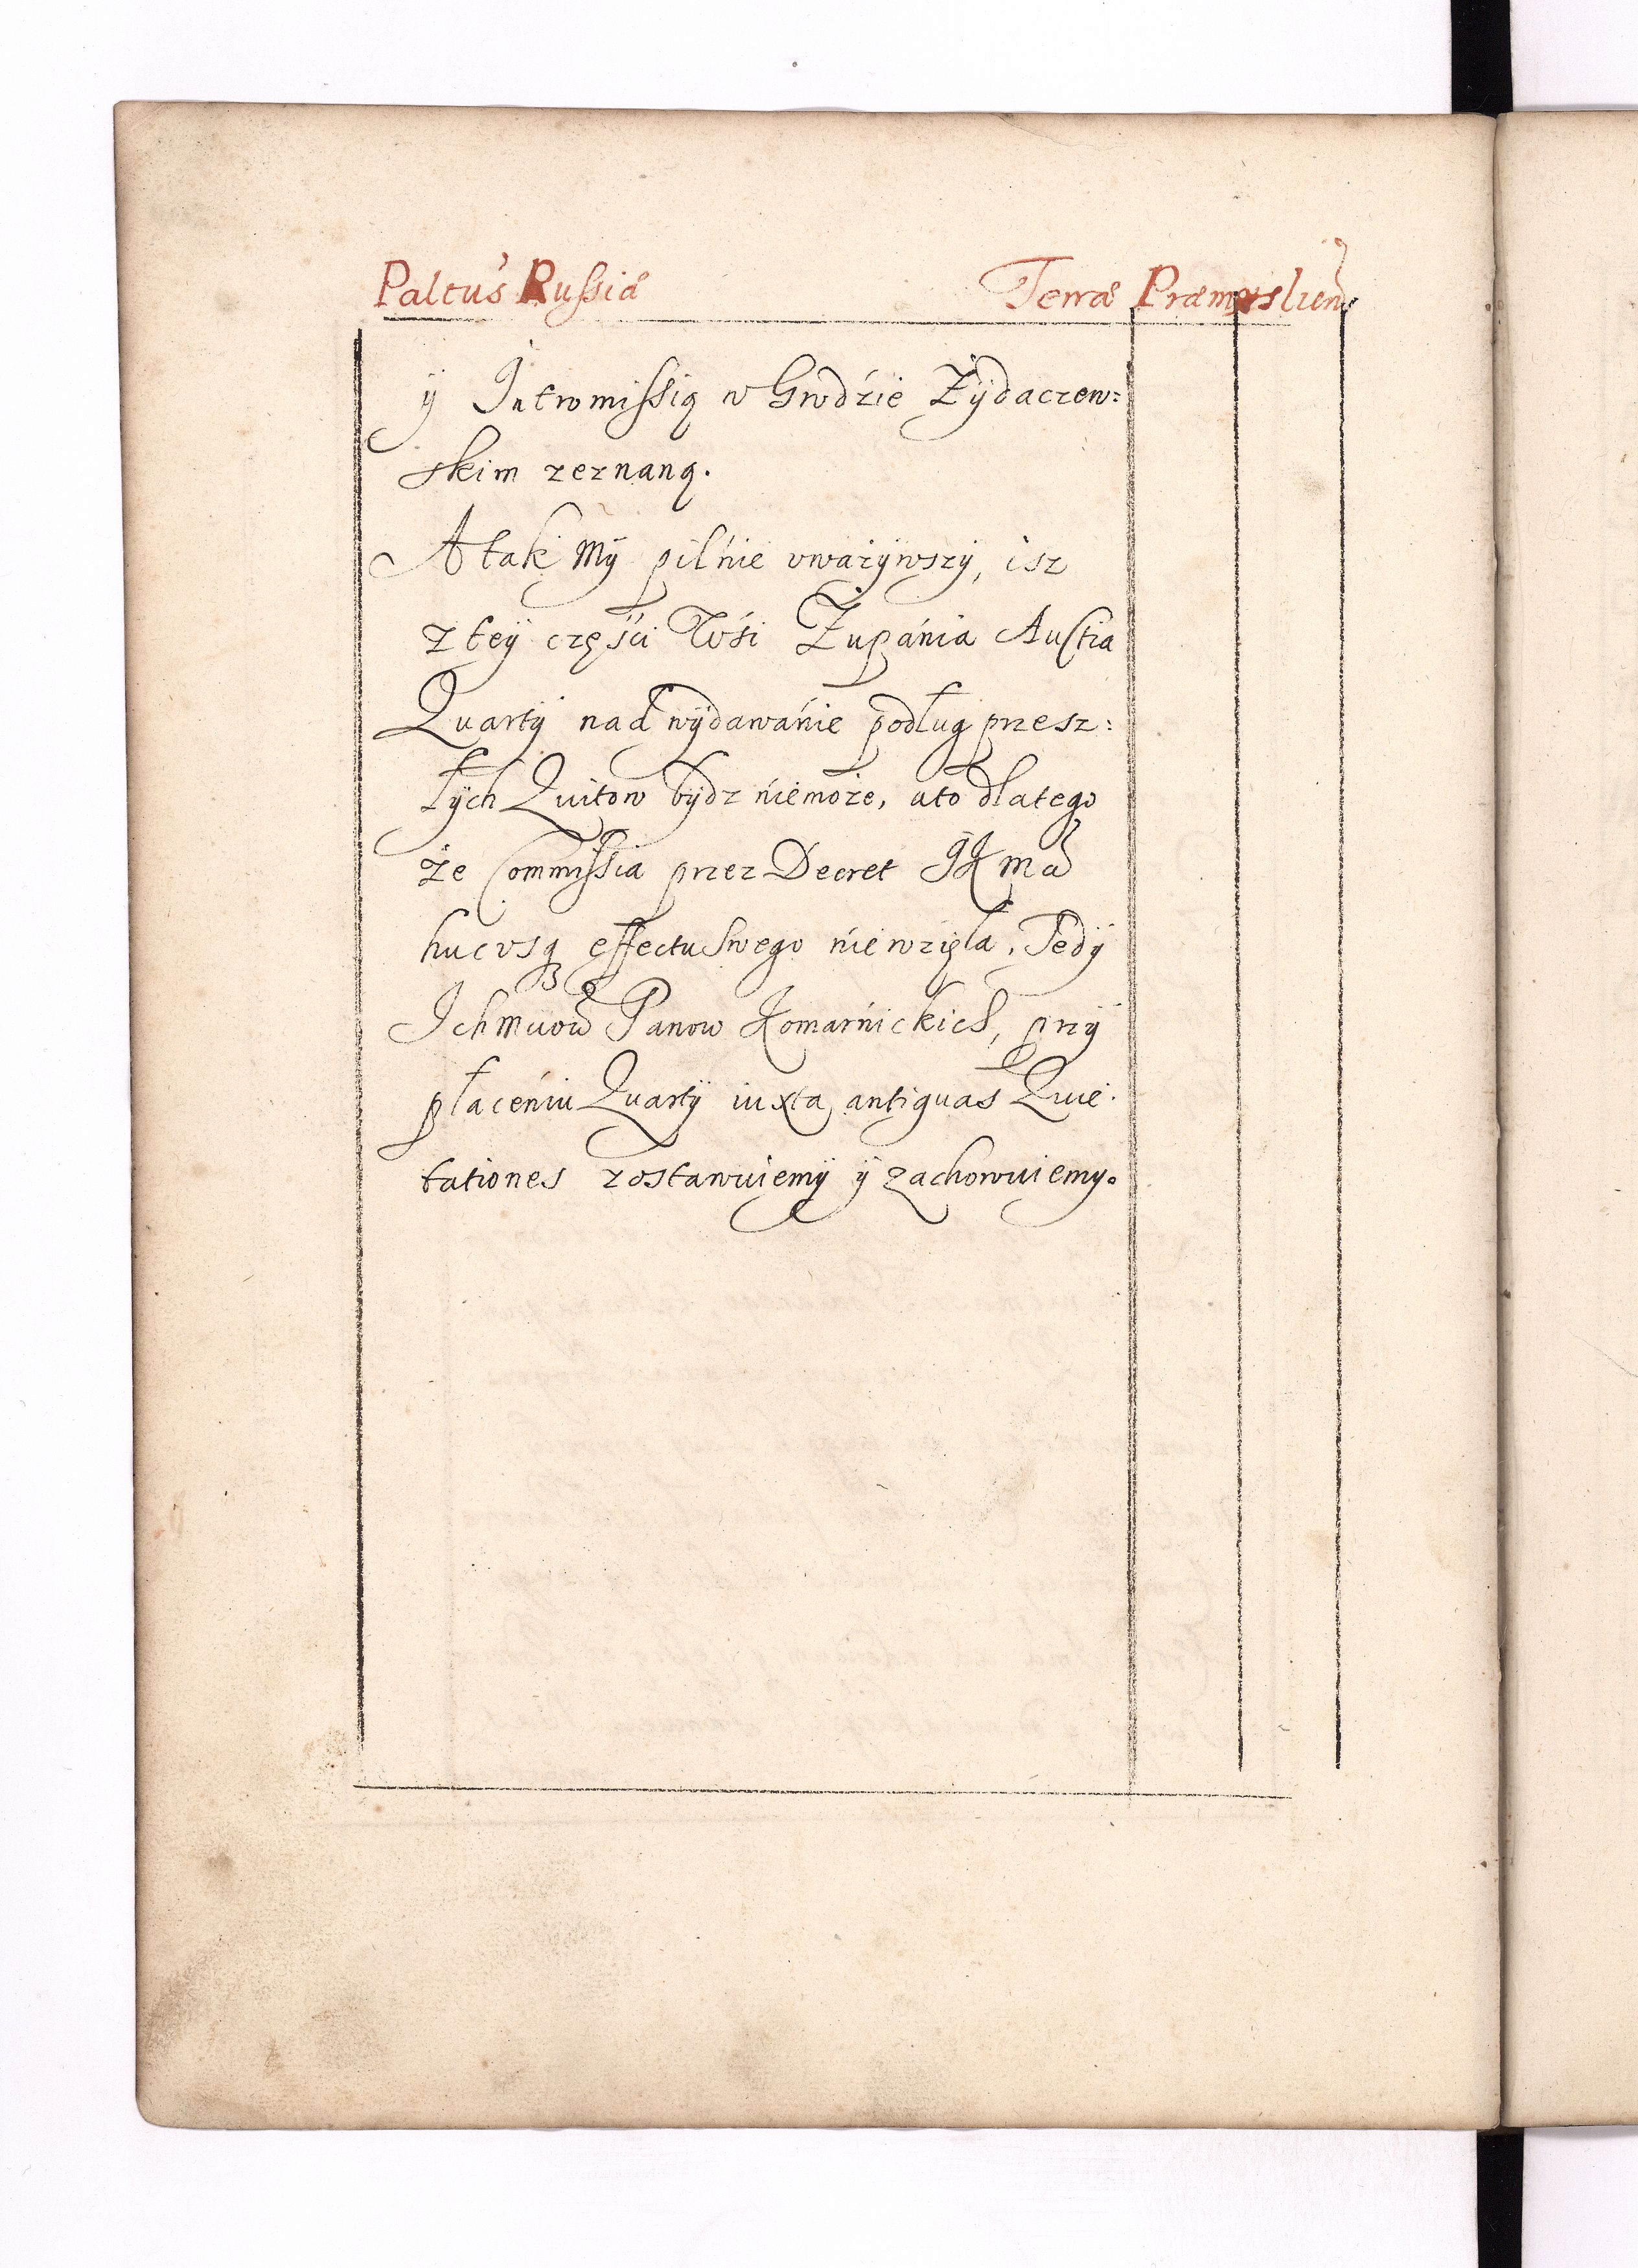 Paltus Russiæ Terræ Præmysliens
ÿ Intromissią w Grodźie Żÿdaczew:
skim zeznaną.
A tak Mÿ pilńie vważÿwszÿ, isz
z teÿ częśći Wśi Żupánia Auctia
Quartÿ nad wÿdawáńie podług presz:
łÿch Quitow bÿdz ńiemoże, ato dlatego
że Commissia przez Decret JKMci
hucusq effectu Swego ńie wzięła, Tedÿ
Ichmciow Panow Komarńickich, przÿ
płaceńiu Quartÿ iuxta antiquas Quie:
tationes zostawuiemÿ ÿ zachowuiemy.